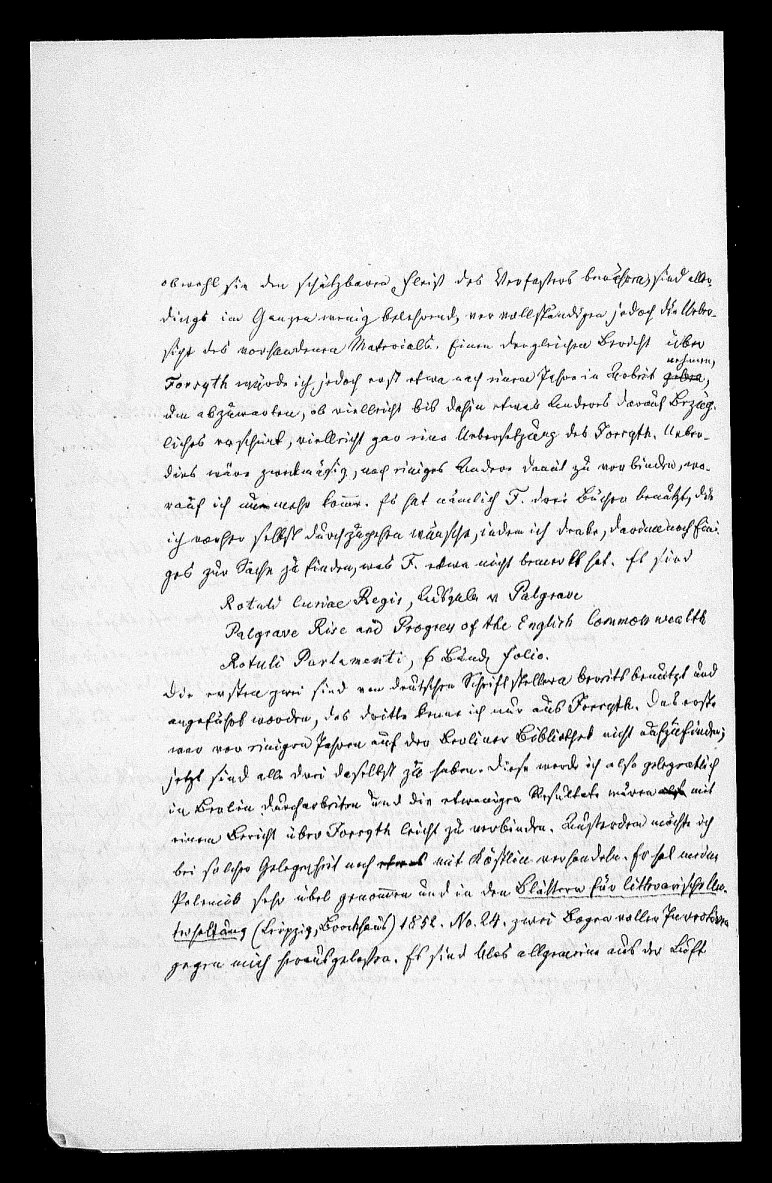 obwohl sie den schätzbaren Fleiß des Verfassers bewähren, sind aller-
dings im Ganzen wenig belehrend, vervollständigen jedoch die Ueber-
sicht des vorhandenen Materials. Einen dergleichen Bericht über
nehmen,
Forsyth würde ich jedoch erst etwa nach einem Jahre in Arbeit geben,
um abzuwarten, ob vielleicht bis dahin etwas Anderes darauf Bezüg-
liches erscheint, vielleicht gar eine Uebersetzung des Forsyth. Ueber-
dies wäre zweckmäßig, noch einiges Andere damit zu verbinden, wo-
rauf ich nunmehr komme. Es hat nämlich F. drei Bücher benützt, die
ich vorher selbst durchzugehen wünsche, indem ich denke, darinne noch Eini-
ges zur Sache zu finden, was F. etwa nicht bemerkt hat. Es sind
Rotuli Curiae Regis, Ausgabe v Palgrave
Palgrave Rise and Progress of the English Commonwealth
Rotuli Parlamenti, 6 Bände Folio.
Die ersten zwei sind von deutschen Schriftstellern bereits benutzt und
angeführt worden, das dritte kenne ich nur aus Forsyth. Das erste
war vor einigen Jahren auf der Berliner Bibliothek nicht aufzufinden;
jetzt sind alle drei daselbst zu haben. Diese werde ich also gelegentlich
in Berlin durcharbeiten und die etwanigen Resultate wären also mit
einem Bericht über Forsyth leicht zu verbinden. Außerdem möchte ich
bei solcher Gelegenheit noch etwas mit Köstlin verhandeln. Er hat meine
Polemik sehr übel genommen und in den Blättern für litterarische Un-
terhaltung (Leipzig, Brockhaus) 1852. No. 24. zwei Bogen voller Invectiven
gegen mich herausgelassen. Es sind blos allgemeine aus der Luft